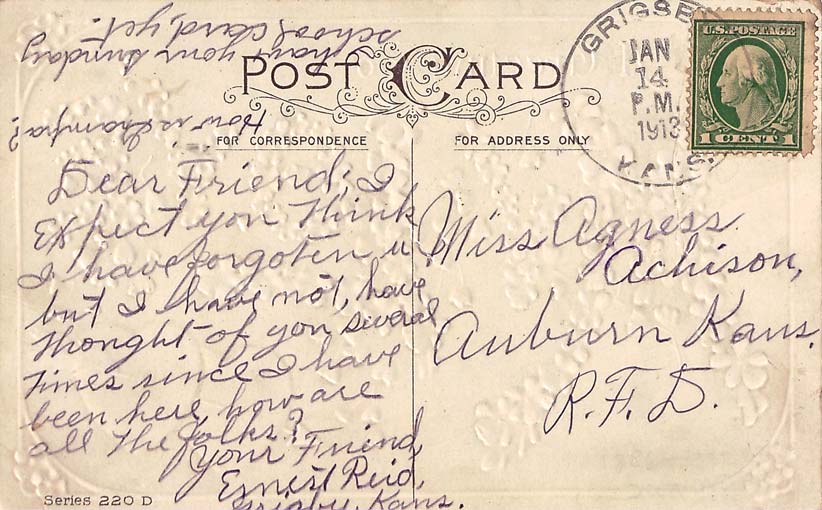 POST CARD
FOR CORRESPONDENCE
FOR ADDRESS ONLY
GRIGSB
JAN
14
P.M.
1913
KANS.
U.S. POSTAGE
1 CENT 1
Dear Friend; I
Expect you think
I have forgoten u
but I have not, have
thought of you several
times since I have
been here, how are
all the folks?
Your Friend,
Ernest Reid,
Grigby, Kans.
How is Grampa?
have your sunday
school card yet.
Miss Agness
Achison,
Auburn Kans.
R.F.D.
Series 220 D